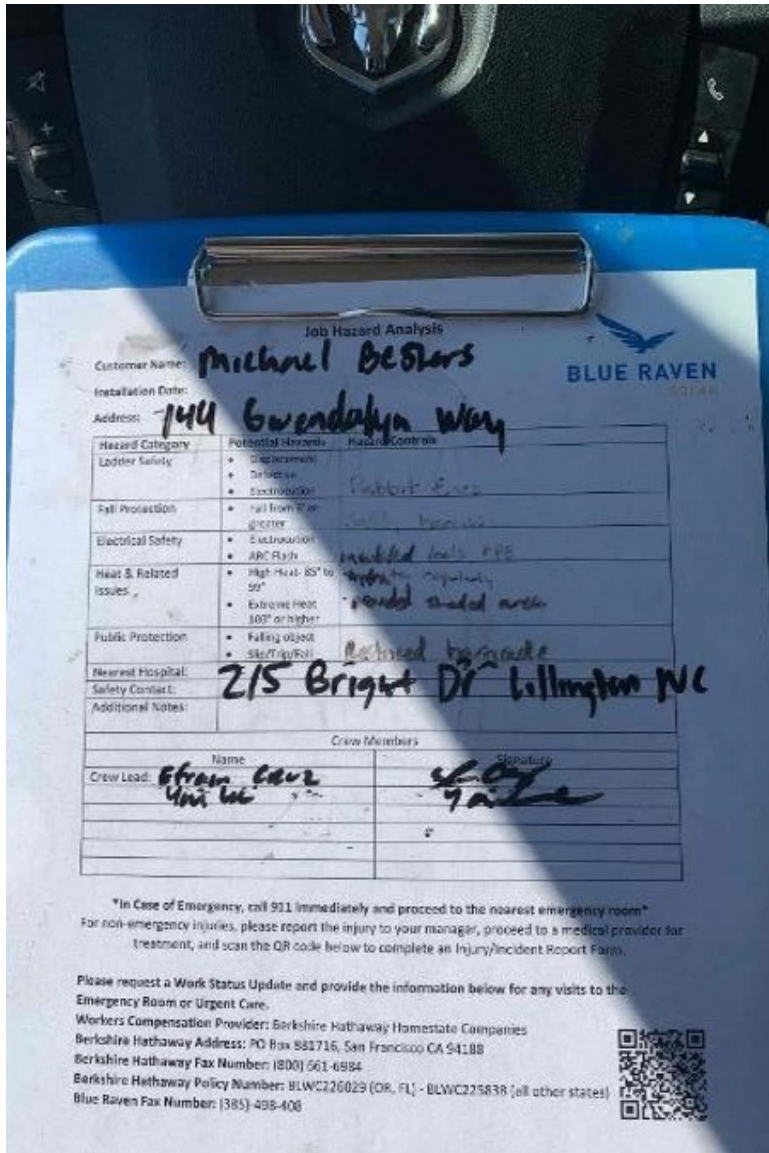 Job Hazard Analysis
Customer Name: Michael
BLUE RAVEN
SOLAR
Installation Date:
Address: 144 Gwendolyn Way
Hazard Category Potential Hazards Hazard Controls
Ladder Safety
• Displacement
• Defective
• Electrocution
Fall Protection
• Fall from 6' or greater
Electrical Safety
• Electrocution
• ARC Flash
insulated tools PPE
Heat & Related Issues
• High Heat- 85° to 99°
hydrate regularly
• Extreme Heat 100° or higher
shaded area
Public Protection
• Falling object
• Slip/Trip/Fall
barricade
Nearest Hospital: 215 Bright Dr Lillington NC
Safety Contact:
Additional Notes:
Crew Members
Name Signature
Crew Lead: Efrain Cruz
*In Case of Emergency, call 911 immediately and proceed to the nearest emergency room*
For non-emergency injuries, please report the injury to your manager, proceed to a medical provider for
treatment, and scan the QR code below to complete an Injury/Incident Report Form.
Please request a Work Status Update and provide the information below for any visits to the
Emergency Room or Urgent Care.
Workers Compensation Provider: Berkshire Hathaway Homestate Companies
Berkshire Hathaway Address: PO Box 881716, San Francisco CA 94188
Berkshire Hathaway Fax Number: (800) 661-6984
Berkshire Hathaway Policy Number: BLWC226029 (OR, FL) - BLWC225838 (all other states)
Blue Raven Fax Number: (385)-498-408